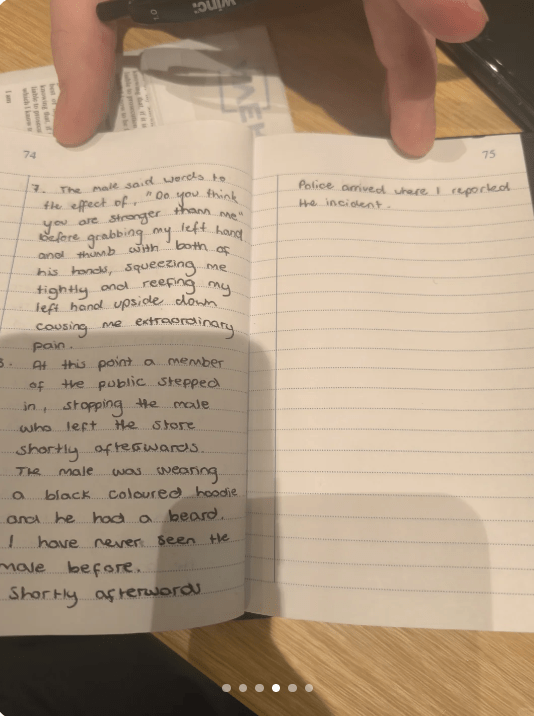 winc.
74
7. The male said words to
the effect of, "Do you think
you are stronger thann me"
before grabbing my left hand
and thumb with both of
his hands, squeezing me
tightly and reefing my
left hand upside down
causing me extraordinary
pain.
8. At this point a member
of the public stepped
in, stopping the male
who left the store
shortly afterwards.
The male was wearing
a black coloured hoodie
and he had a beard.
I have never seen the
male before.
Shortly afterwards
75
Police arrived where I reported
the incident.